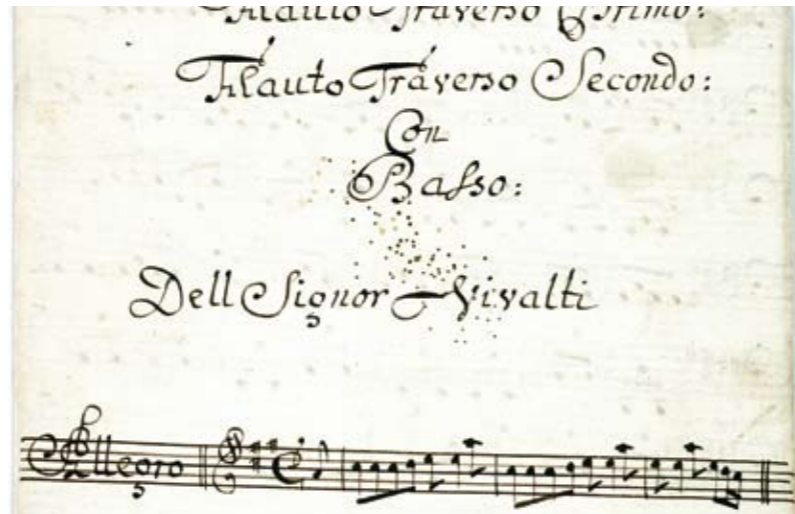 Flauto Traverso Primo:
Flauto Traverso Secondo:
Con
Basso:
Dell Signor Vivalti
Allegro